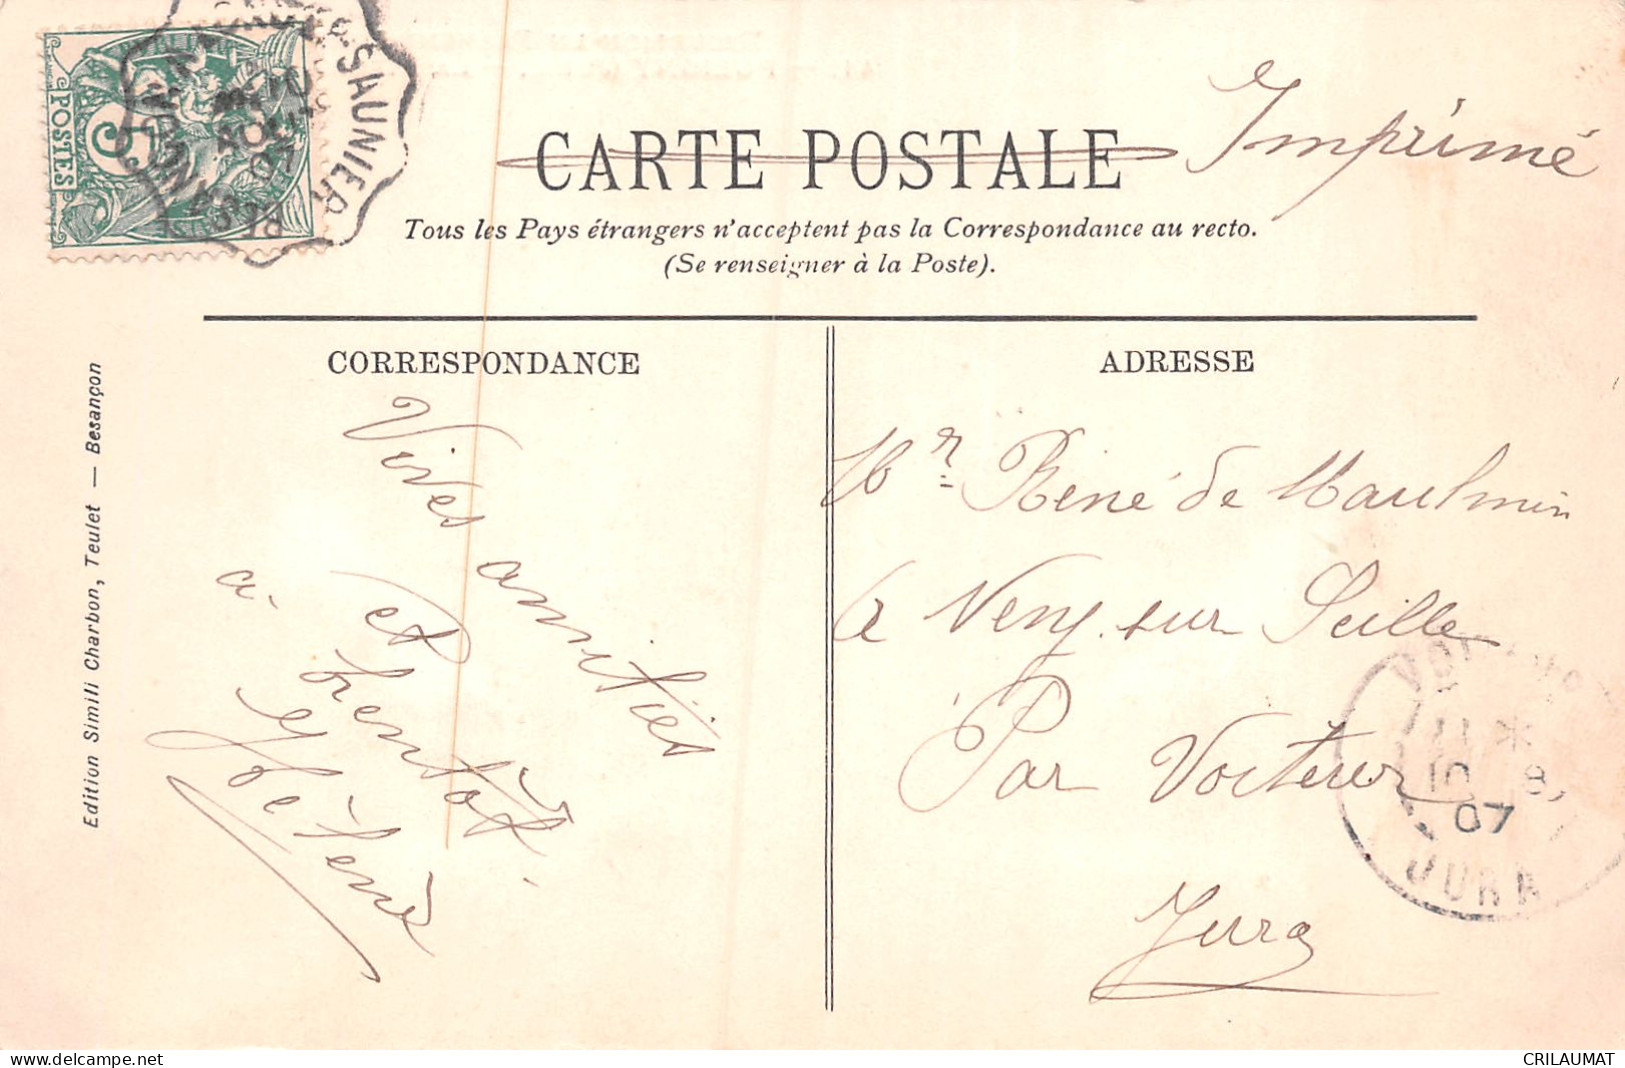 POSTES
5
SAUNIER
AOUT
07
Imprimé
CARTE POSTALE
Tous les Pays étrangers n'acceptent pas la Correspondance au recto.
(Se renseigner à la Poste).
CORRESPONDANCE
Vives amitiés
et
a bientôt
Hélène
Edition Simili Charbon, Teulet — Besançon
ADRESSE
Mr René de Maulmin
à Neny sur Seille
Par Voiteur
Jura
11 *
10 8
07
JURA
CRILAUMAT